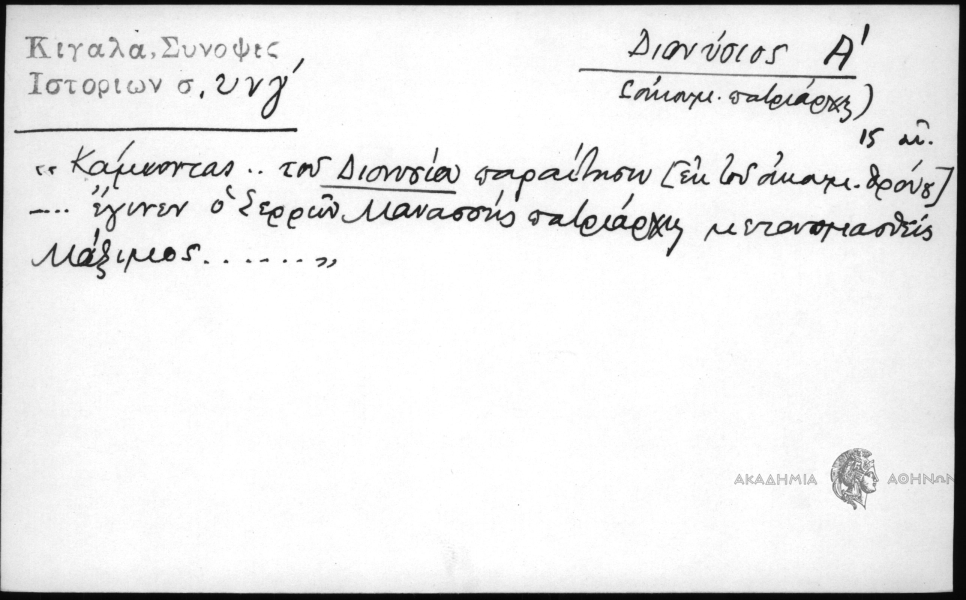 Κιγαλα, Συνοψις
Ιστοριων σ. υνγ'
Διονύσιος Α'
(οἰκουμ. πατριάρχης)
15 αἰ.
"Κάμνοντας .. τοῦ Διονυσίου παραίτησιν [ἐκ τοῦ οἰκουμ. θρόνου]
.... ἔγινεν ὁ Σερρῶν Μανασσῆς πατριάρχης μετονομασθείς
Μάξιμος ......."
ΑΚΑΔΗΜΙΑ ΑΘΗΝΩΝ